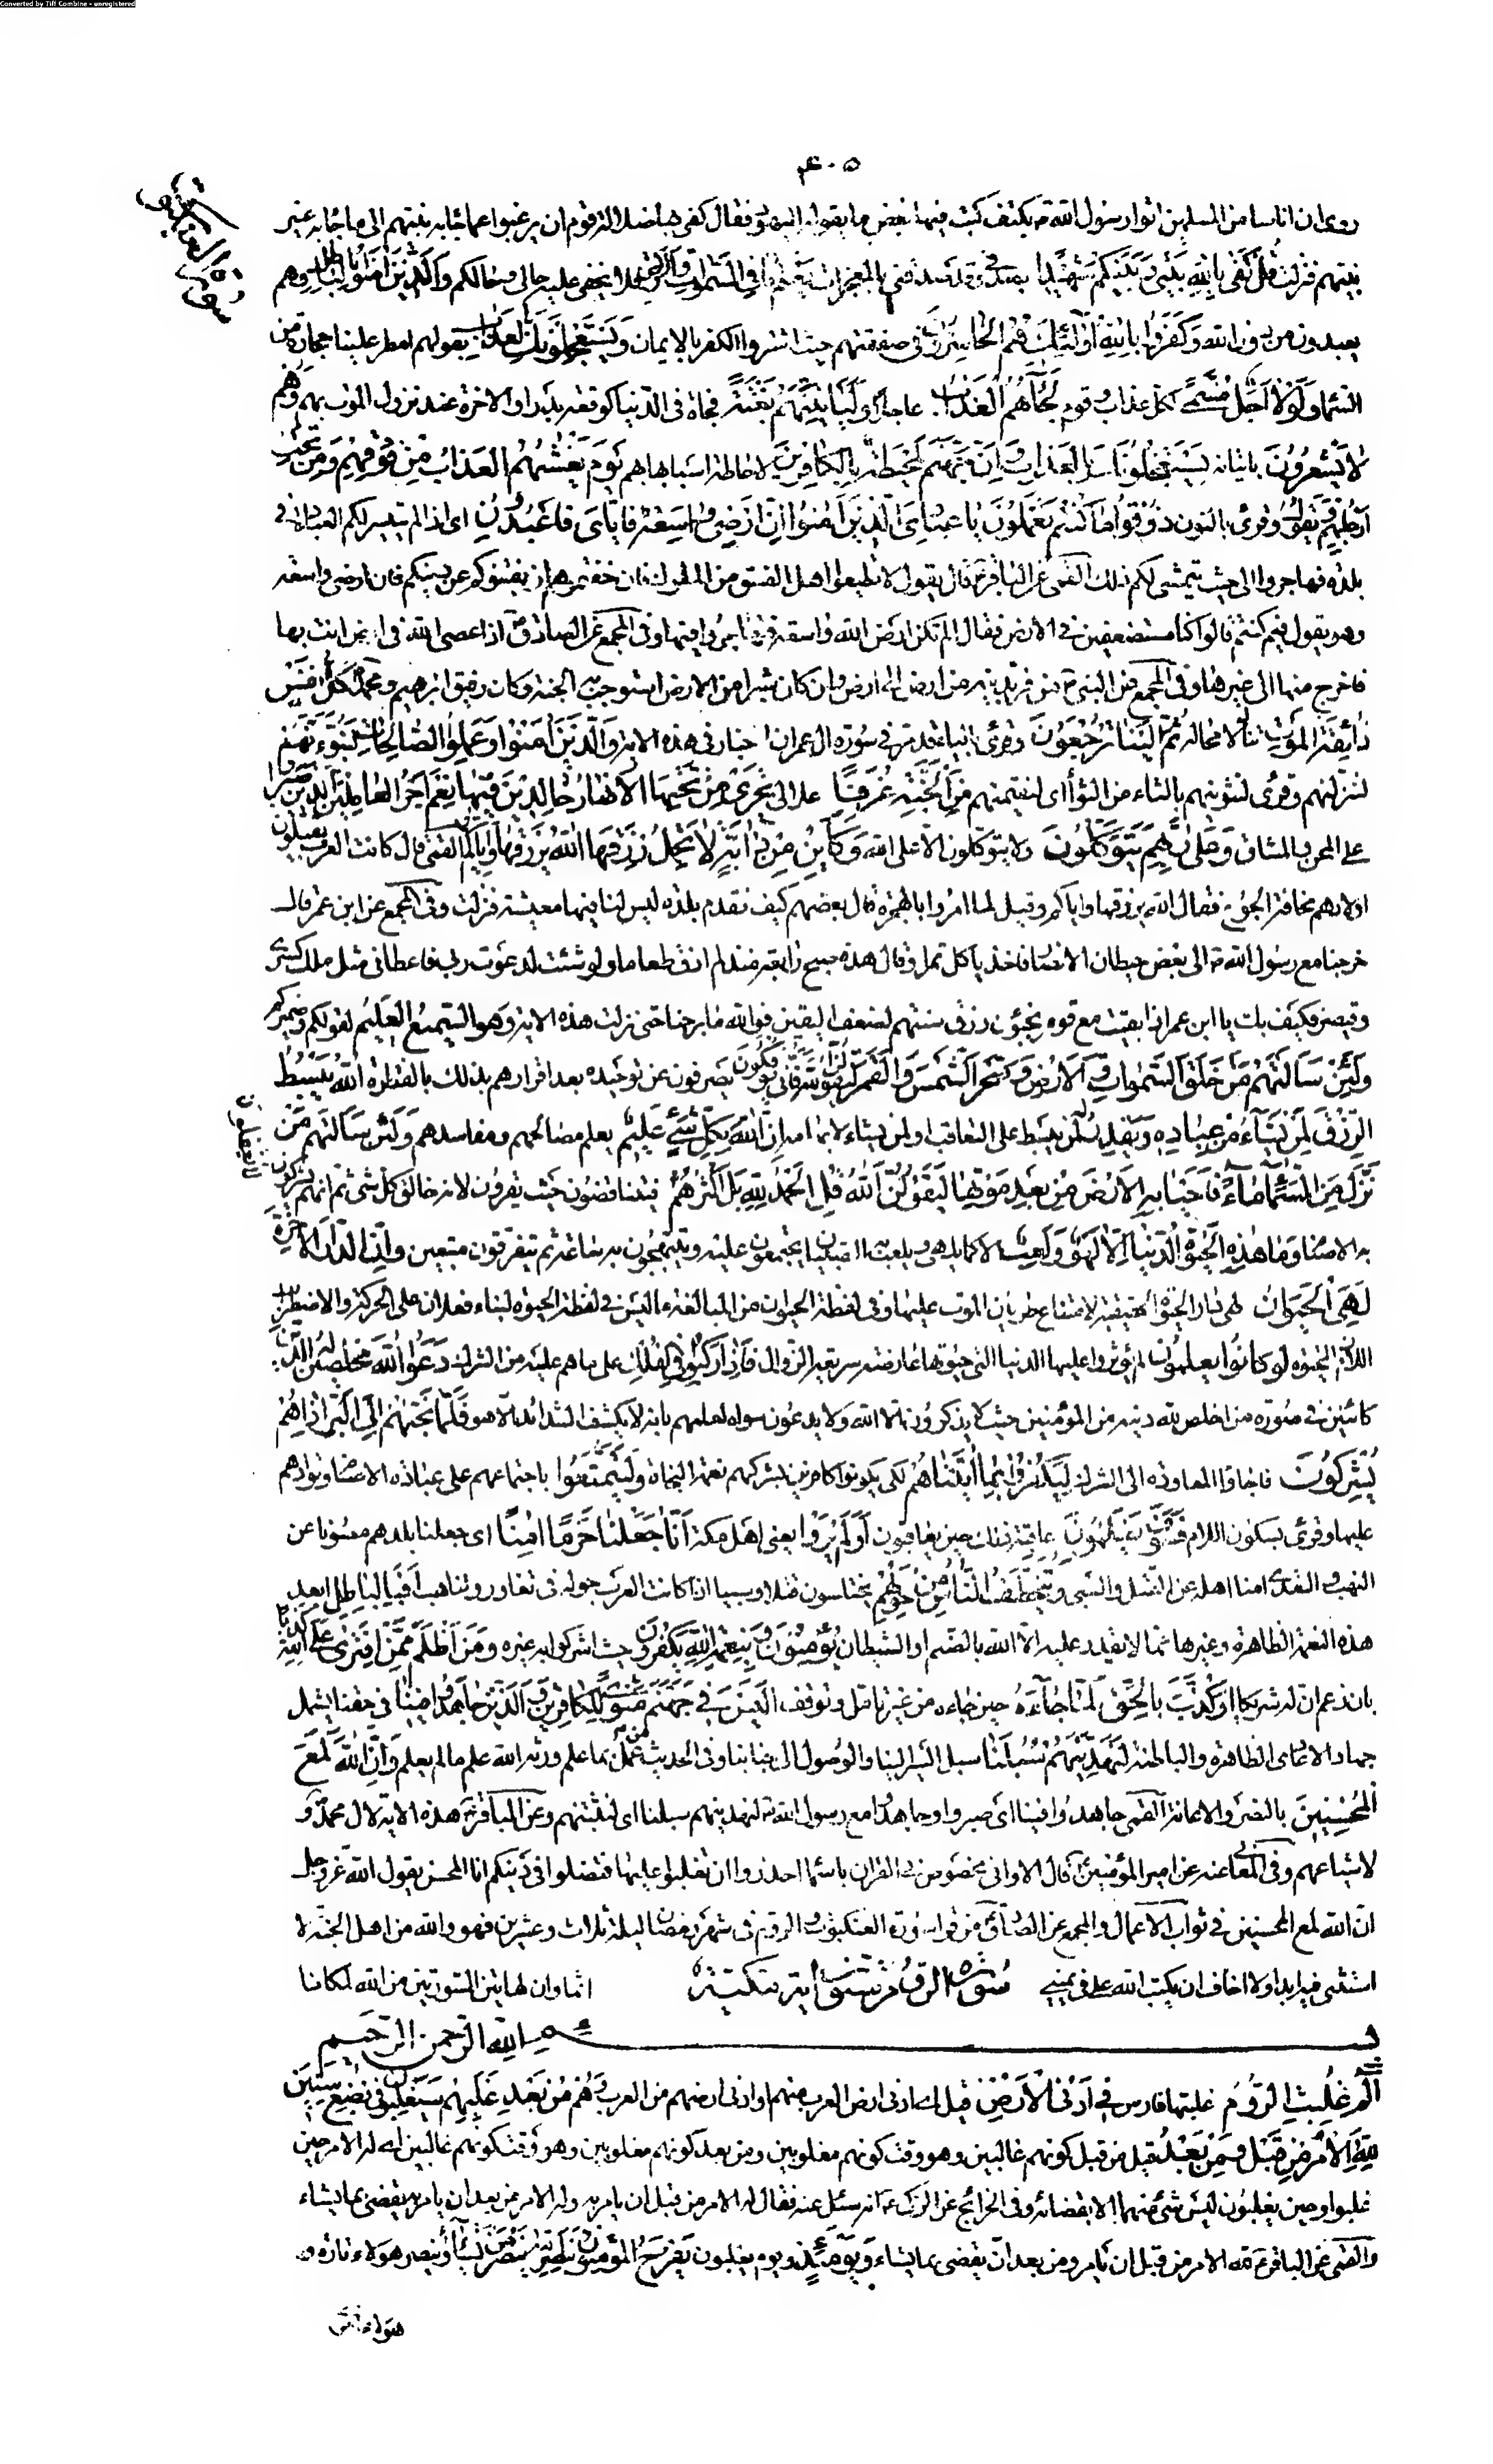 Converted by Tiff Combine - unregistered
۴۰۵
سورة العنكبوت
روى ان اناسا من المسلمين اتوا رسول الله ص بكتف كتب فيها بعض ما يقوله اليهود فقال كفى بها ضلالة قوم ان يرغبوا عما جاء به نبيهم الى ما جاء به غير
نبيهم فنزلت قُلْ كَفى بِاللهِ بَيْنى وَبَيْنَكُمْ شَهيدًا بصدقى وقد صدقنى بالمعجزات يَعْلَمُ ما فِى السَّمواتِ وَالْاَرْضِ فلا يخفى عليه حالى وحالكم وَالَّذينَ امَنُوا بِالْباطِلِ وهم
يعبدون من دون الله وَكَفَرُوا بِاللهِ اُولئِكَ هُمُ الْخاسِرُونَ فى صفقتهم حيث اشتروا الكفر بالايمان وَيَسْتَعْجِلُونَكَ بِالْعَذابِ بقولهم امطر علينا حجارة من
السماء وَلَوْلا اَجَلٌ مُسَمًّى لكل عذاب وقوم لَجاءَهُمُ الْعَذابُ عاجلا وَلَيَأْتِيَنَّهُمْ بَغْتَةً فجاة فى الدنيا كوقعة بدر او الاخرة عند نزول الموت بهم وَهُمْ
لا يَشْعُرُونَ باتيانه يَسْتَعْجِلُونَكَ بِالْعَذابِ وَاِنَّ جَهَنَّمَ لَمُحيطَةٌ بِالْكافِرينَ لاحاطة اسبابها بهم يَوْمَ يَغْشيهُمُ الْعَذابُ مِنْ فَوْقِهِمْ وَمِنْ تَحْتِ
اَرْجُلِهِمْ وَيَقُولُ وقرئ بالنون ذُوقُوا ما كُنْتُمْ تَعْمَلُونَ يا عِبادِىَ الَّذينَ امَنُوا اِنَّ اَرْضى واسِعَةٌ فَاِيّاىَ فَاعْبُدُونِ اى اذا لم يتيسر لكم العبادة فى
بلدة فهاجروا الى حيث يتمشى لكم ذلك القمى عن الباقر ع قال يقول لا تطيعوا اهل الفسق من الملوك فان خفتموهم ان يفتنوكم عن دينكم فان ارضى واسعة
وهو يقول فيم كنتم قالوا كنا مستضعفين فى الارض فقال الم تكن ارض الله واسعة فتهاجروا فيها وفى المجمع عن الصادق ع اذا عصى الله فى ارض انت بها
فاخرج منها الى غيرها وفى المجمع عن النبى ص من فر بدينه من ارض الى ارض وان كان شبرا من الارض استوجب بها الجنة وكان رفيق ابرهيم ومحمد ص كُلُّ نَفْسٍ
ذائِقَةُ الْمَوْتِ تناله لا محالة ثُمَّ اِلَيْنا تُرْجَعُونَ وقرئ بالياء قد مر فى سورة ال عمران اخبار فى هذه الاية وَالَّذينَ امَنُوا وَعَمِلُوا الصّالِحاتِ لَنُبَوِّئَنَّهُمْ
لننزلنهم وقرئ لنثوينهم بالثاء من الثواء اى لنقيمنهم مِنَ الْجَنَّةِ غُرَفًا علالى تَجْرى مِنْ تَحْتِهَا الْاَنْهارُ خالِدينَ فيها نِعْمَ اَجْرُ الْعامِلينَ اَلَّذينَ صَبَرُوا
على المحن والمشاق وَعَلى رَبِّهِمْ يَتَوَكَّلُونَ ولا يتوكلون الا على الله وَكَاَيِّنْ مِنْ دابَّةٍ لا تَحْمِلُ رِزْقَهَا اللهُ يَرْزُقُها وَاِيّاكُمْ القمى قال كانت العرب يقتلون
اولادهم مخافة الجوع فقال الله يرزقها واياكم وقيل لما امروا بالهجرة قال بعضهم كيف نقدم بلدة ليس لنا فيها معيشة فنزلت وفى المجمع عن ابن عمر قال
خرجنا مع رسول الله ص الى بعض حيطان الانصار فاخذ ياكل تمرا وقال هذه صبح رابعة منذ لم اذق طعاما ولو شئت لدعوت ربى فاعطانى مثل ملك كسرى
وقيصر فكيف بك يا ابن عمر اذا بقيت مع قوم يخبؤن رزق سنتهم لضعف اليقين فوالله ما برحنا حتى نزلت هذه الاية وَهُوَ السَّميعُ الْعَليمُ لقولكم وضميركم
وَلَئِنْ سَاَلْتَهُمْ مَنْ خَلَقَ السَّمواتِ وَالْاَرْضَ وَسَخَّرَ الشَّمْسَ وَالْقَمَرَ لَيَقُولُنَّ اللهُ فَاَنّى يُؤْفَكُونَ يصرفون عن توحيده بعد اقرارهم بذلك بالفطرة اَللهُ يَبْسُطُ
الرِّزْقَ لِمَنْ يَشاءُ مِنْ عِبادِه وَيَقْدِرُ لَهُ يبسط على التعاقب او لمن يشاء لابهامه اِنَّ اللهَ بِكُلِّ شَىْءٍ عَليمٌ يعلم مصالحهم ومفاسدهم وَلَئِنْ سَاَلْتَهُمْ مَنْ
نَزَّلَ مِنَ السَّماءِ ماءً فَاَحْيا بِهِ الْاَرْضَ مِنْ بَعْدِ مَوْتِها لَيَقُولُنَّ اللهُ قُلِ الْحَمْدُ لِلّهِ بَلْ اَكْثَرُهُمْ لا يَعْقِلُونَ فيتناقضون حيث يقرون لانه خالق كل شئ ثم انهم يشركون
به الاصنام وَما هذِهِ الْحَيوةُ الدُّنْيا اِلّا لَهْوٌ وَلَعِبٌ الا كما يلهى ويلعب به الصبيان يجتمعون عليه ويبتهجون به ساعة ثم يتفرقون متعبين وَاِنَّ الدّارَ الْاخِرَةَ
لَهِىَ الْحَيَوانُ لهى دار الحيوة الحقيقية لامتناع طريان الموت عليها وفى لفظة الحيوان من المبالغة ما ليس فى لفظة الحيوة لبناء فعلان على الحركة والاضطراب
اللازم للحيوة لَوْ كانُوا يَعْلَمُونَ لم يؤثروا عليها الدنيا التى حيوتها عارضة سريعة الزوال فَاِذا رَكِبُوا فِى الْفُلْكِ على ما هم عليه من الشرك دَعَوُا اللهَ مُخْلِصينَ لَهُ الدّينَ
كائنين فى صورة من اخلص لله دينه من المؤمنين حيث لا يذكرون الا الله ولا يدعون سواه لعلمهم بانه لا يكشف الشدائد الا هو فَلَمّا نَجّيهُمْ اِلَى الْبَرِّ اِذا هُمْ
يُشْرِكُونَ فاجاؤا المعاودة الى الشرك لِيَكْفُرُوا بِما اتَيْناهُمْ لكى يكونوا كافرين بشركهم نعمة النجاة وَلِيَتَمَتَّعُوا باجتماعهم على عبادة الاصنام وتوادهم
عليها وقرئ بسكون اللام فَسَوْفَ يَعْلَمُونَ عاقبة ذلك حين يعاقبون اَوَلَمْ يَرَوْا يعنى اهل مكة اَنّا جَعَلْنا حَرَمًا امِنًا اى جعلنا بلدهم مصونا عن
النهب والتعدى امنا اهله عن القتل والسبى وَيُتَخَطَّفُ النّاسُ مِنْ حَوْلِهِمْ يختلسون قتلا وسبيا اذ كانت العرب حوله فى تغاور وتناهب اَفَبِالْباطِلِ ابعد
هذه النعمة الظاهرة وغيرها مما لا يقدر عليه الا الله بالصنم او الشيطان يُؤْمِنُونَ وَبِنِعْمَةِ اللهِ يَكْفُرُونَ حيث اشركوا به غيره وَمَنْ اَظْلَمُ مِمَّنِ افْتَرى عَلَى اللهِ كَذِبًا
بان زعم ان له شريكا اَوْ كَذَّبَ بِالْحَقِّ لَمّا جاءَهُ حين جاءه من غير تامل وتوقف اَلَيْسَ فى جَهَنَّمَ مَثْوًى لِلْكافِرينَ وَالَّذينَ جاهَدُوا فينا فى حقنا يشمل
جهاد الاعادى الظاهرة والباطنة لَنَهْدِيَنَّهُمْ سُبُلَنا سبل السير الينا والوصول الى جنابنا وفى الحديث من عمل بما علم ورثه الله علم ما لم يعلم وَاِنَّ اللهَ لَمَعَ
الْمُحْسِنينَ بالنصر والاعانة القمى جاهدوا فينا اى صبروا وجاهدوا مع رسول الله ص لنهدينهم سبلنا اى لنثبتنهم وعن الباقر ع هذه الاية لال محمد ص و
لاشياعهم وفى المعانى عنه عن امير المؤمنين ع قال الا وانى مخصوص فى القران باسماء احذروا ان تغلبوا عليها فتضلوا فى دينكم انا المحسن يقول الله عز وجل
ان الله لمع المحسنين فى ثواب الاعمال والمجمع عن الصادق ع من قرا سورة العنكبوت والروم فى شهر رمضان ليلة ثلاث وعشرين فهو والله من اهل الجنة لا
استثنى فيه ابدا ولا اخاف ان يكتب الله على فى يمينى سورة الروم ستون اية مكية اثما وان لهاتين السورتين من الله لمكانا
بسم الله الرحمن الرحيم
الم غُلِبَتِ الرُّومُ غلبتها فارس فى اَدْنَى الْاَرْضِ قيل اى ادنى ارض العرب منهم او ادنى ارضهم من العرب وَهُمْ مِنْ بَعْدِ غَلَبِهِمْ سَيَغْلِبُونَ فى بِضْعِ سِنينَ
لِلّهِ الْاَمْرُ مِنْ قَبْلُ وَمِنْ بَعْدُ قيل من قبل كونهم غالبين وهو وقت كونهم مغلوبين ومن بعد كونهم مغلوبين وهو وقت كونهم غالبين اى له الامر حين
غلبوا وحين يغلبون ليس شئ منهما الا بقضائه وفى الخرائج عن الزكى ع انه سئل عنه فقال له الامر من قبل ان يامر به وله الامر من بعد ان يامر به يقضى بما يشاء
والقمى عن الباقر ع لله الامر من قبل ان يامر ومن بعد ان يقضى بما يشاء وَيَوْمَئِذٍ ويوم يغلبون يَفْرَحُ الْمُؤْمِنُونَ بِنَصْرِ اللهِ يَنْصُرُ مَنْ يَشاءُ وينصر هؤلاء تارة و
هؤلاء اخرى